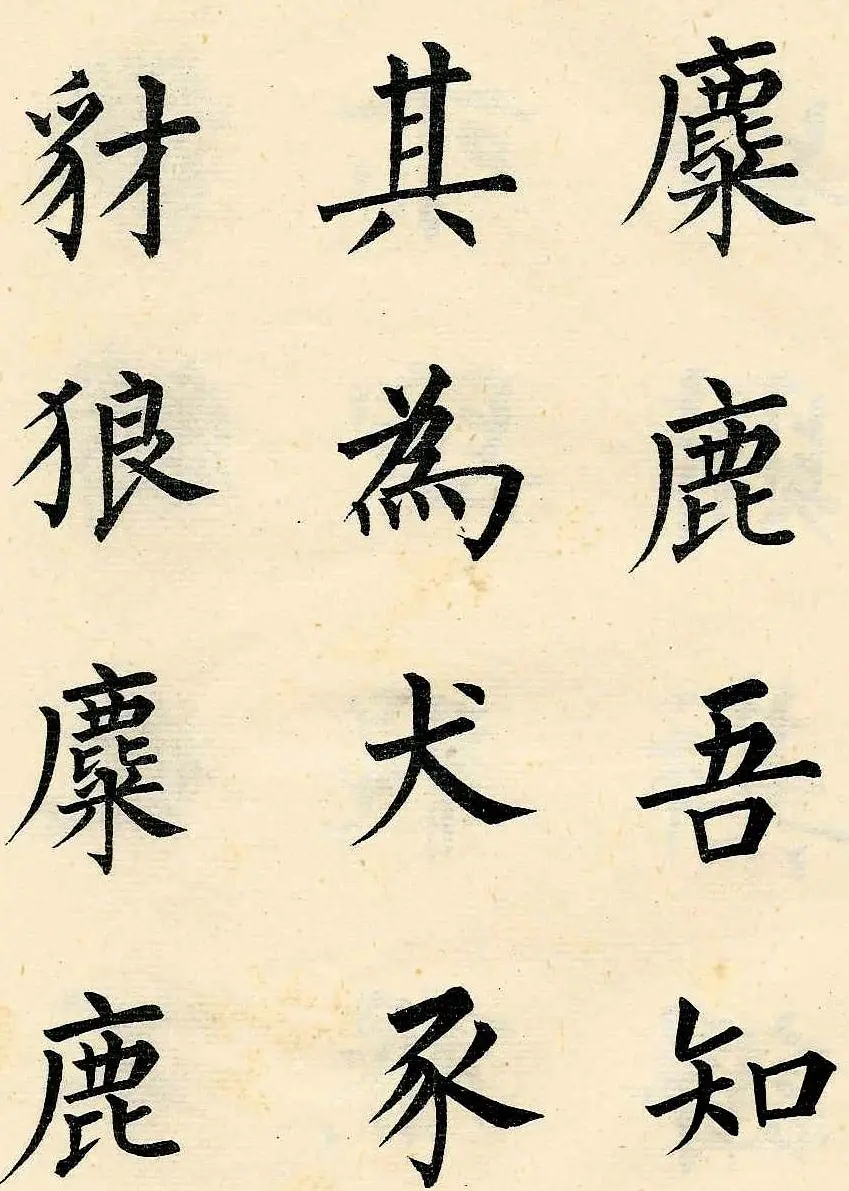 麋鹿吾知
其為犬豕
豺狼麋鹿